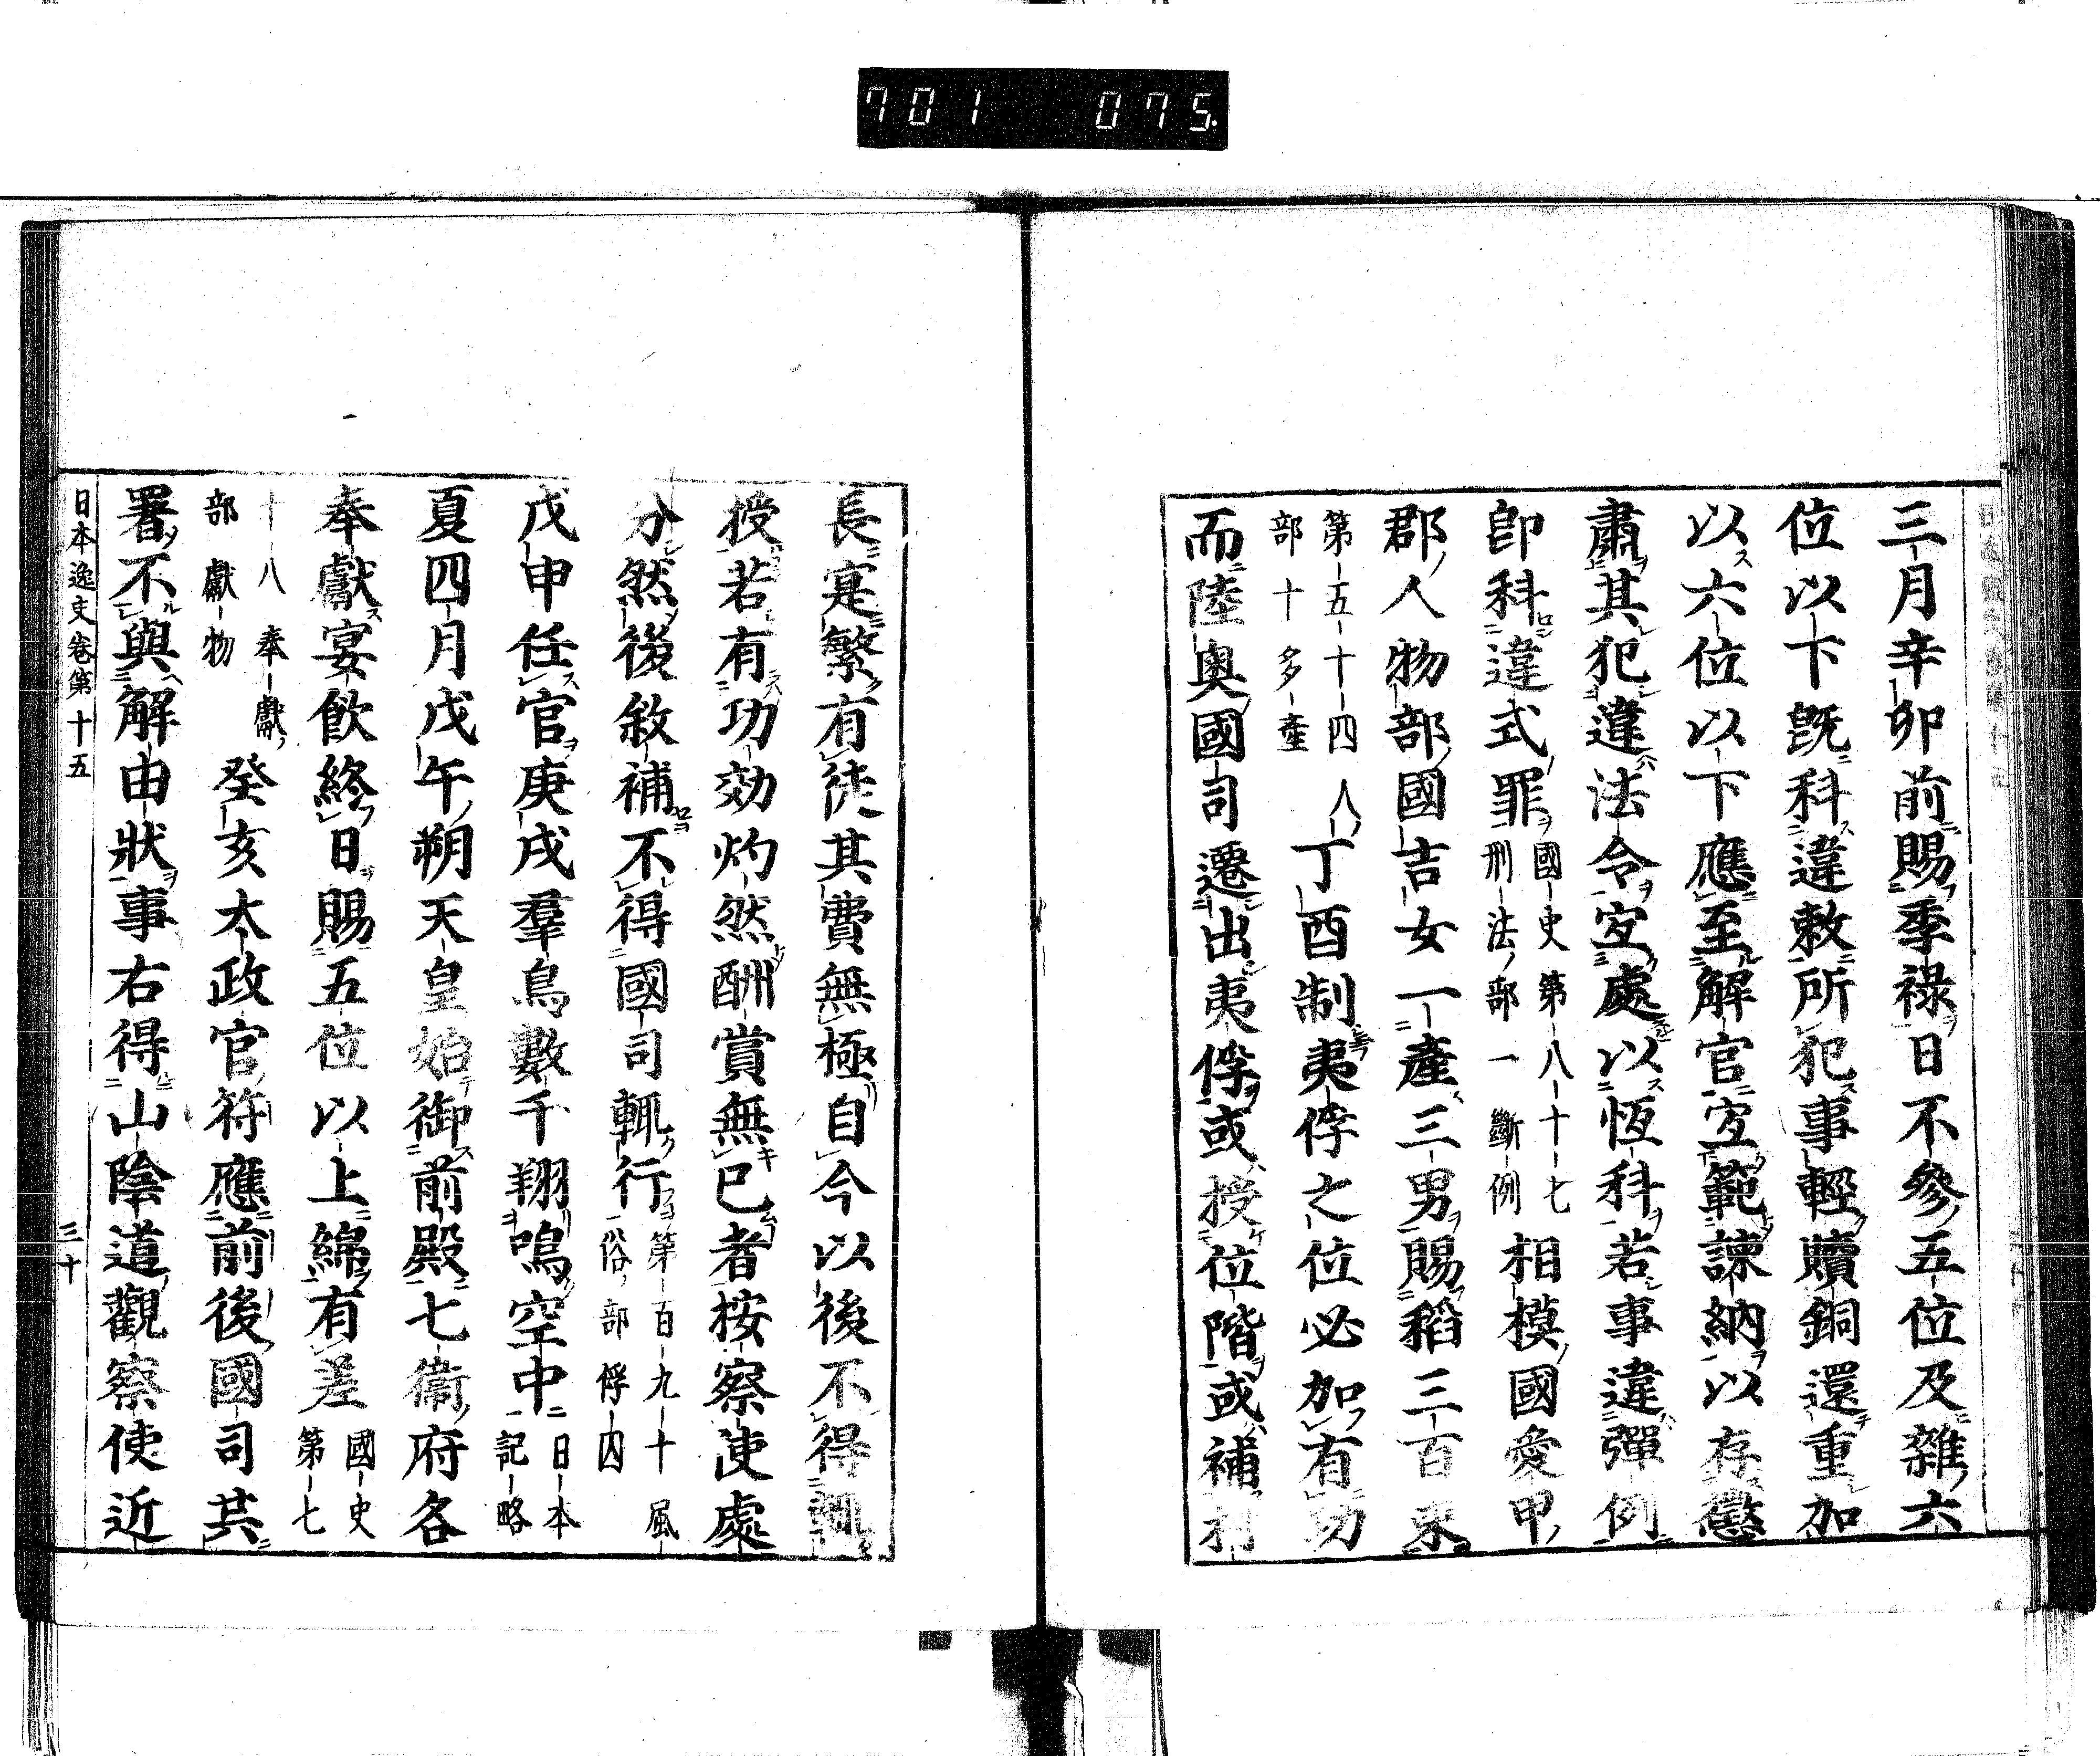 701 075
三月辛卯前賜季祿日不參五位及雜六
位以下旣科違敕所犯事輕贖銅還重加
以六位以下應至解官宜範諫納以存懲
肅其犯違法令宜處以恆科若事違彈例
卽科違式罪國史第八十七刑法部一斷例相模國愛甲
郡人物部國吉女一產三男賜稻三百束
第五十四人部十多產丁酉制夷俘之位必加有功
而陸奧國司遷出夷俘或授位階或補村
長寔繁有徒其費無極自今以後不得輒
授若有功効灼然酬賞無已者按察使處
分然後敘補不得國司輒行第百九十風俗部俘囚
戊申任官庚戌羣鳥數千翔鳴空中日本記略
夏四月戊午朔天皇始御前殿七衞府各
奉獻宴飮終日賜五位以上綿有差國史第七
十八奉獻部獻物癸亥太政官符應前後國司共
署不與解由狀事右得山陰道觀察使近
日本逸史卷第十五 三十